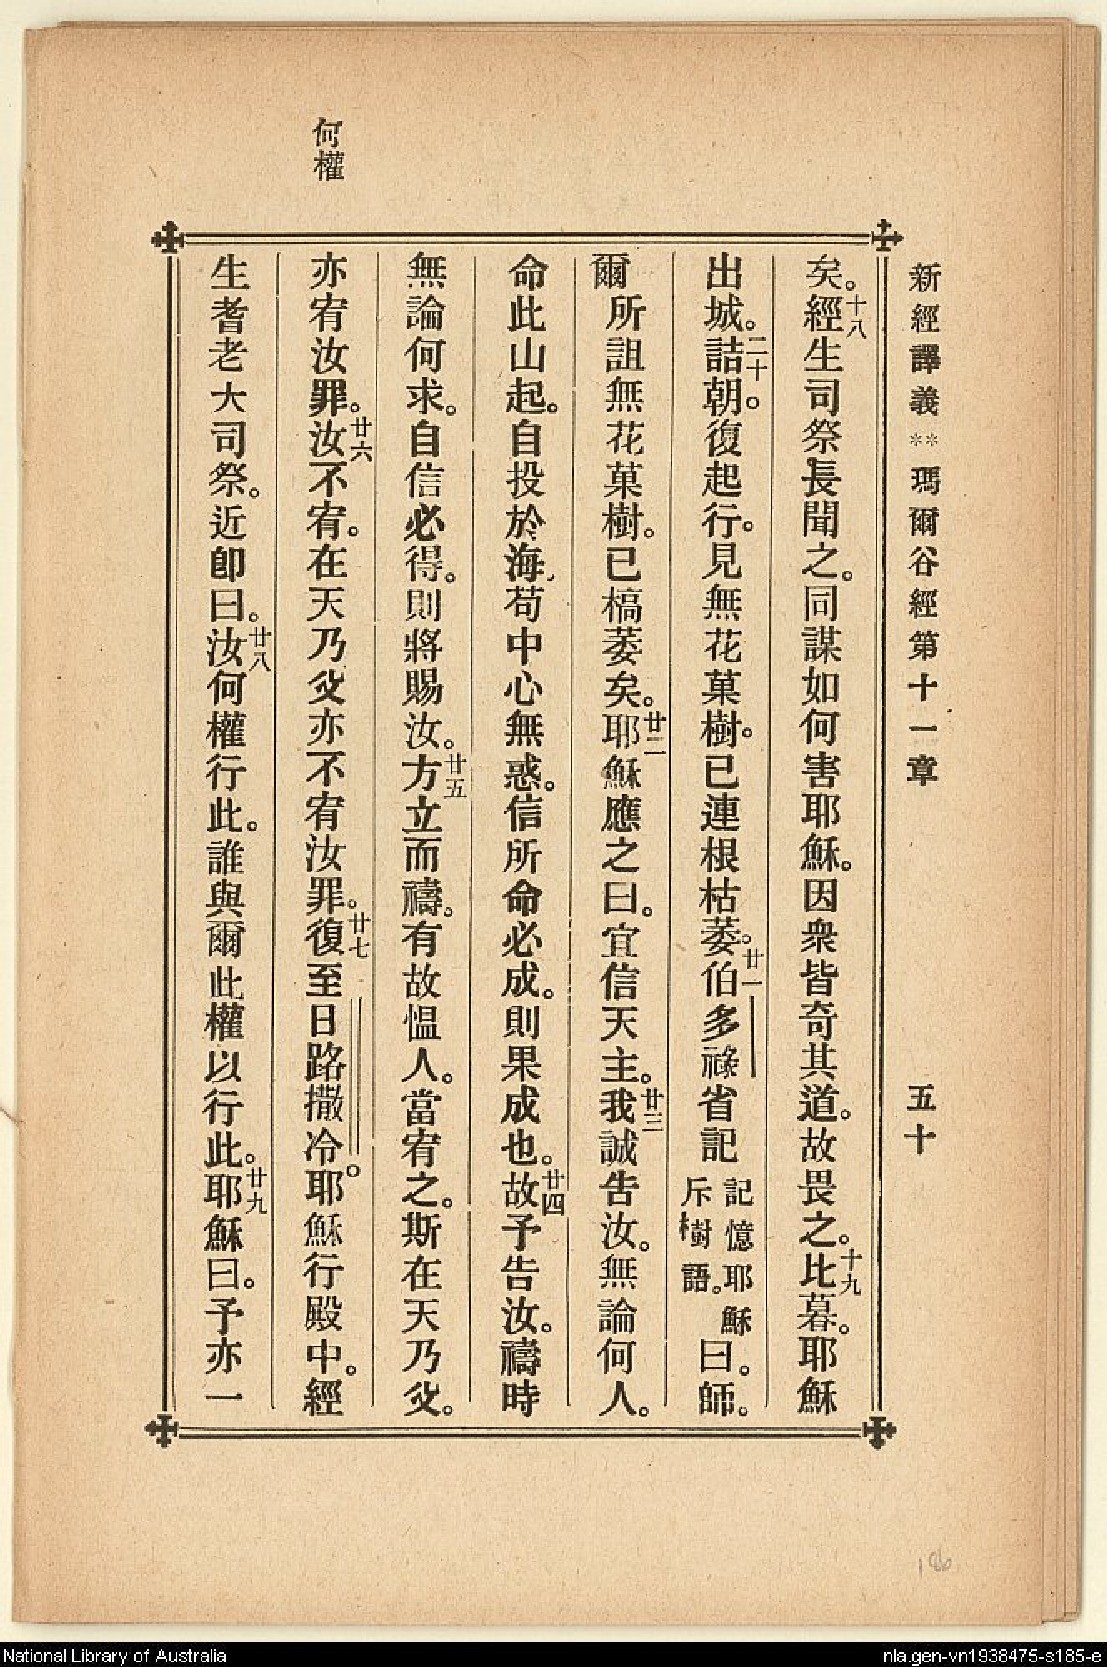 新經譯義 ** 瑪爾谷經第十一章 五十
矣。十八經生司祭長聞之。同謀如何害耶穌。因衆皆奇其道。故畏之。十九比暮。耶穌
出城。二十詰朝。復起行。見無花菓樹。已連根枯萎。廿一伯多祿省記記憶耶穌斥樹語。曰。師。
爾所詛無花菓樹。已槁萎矣。廿二耶穌應之曰。宜信天主。廿三我誠告汝。無論何人。
命此山起。自投於海、苟中心無惑。信所命必成。則果成也。廿四故予告汝。禱時
無論何求。自信必得。則將賜汝。廿五方立而禱。有故慍人。當宥之。斯在天乃父。
亦宥汝罪。廿六汝不宥。在天乃父亦不宥汝罪。廿七復至日路撒冷。耶穌行殿中。經
生耆老大司祭。近卽曰。廿八汝何權行此。誰與爾此權以行此。廿九耶穌曰。予亦一
何權
186
National Library of Australia
nla.gen-vn1938475-s185-e